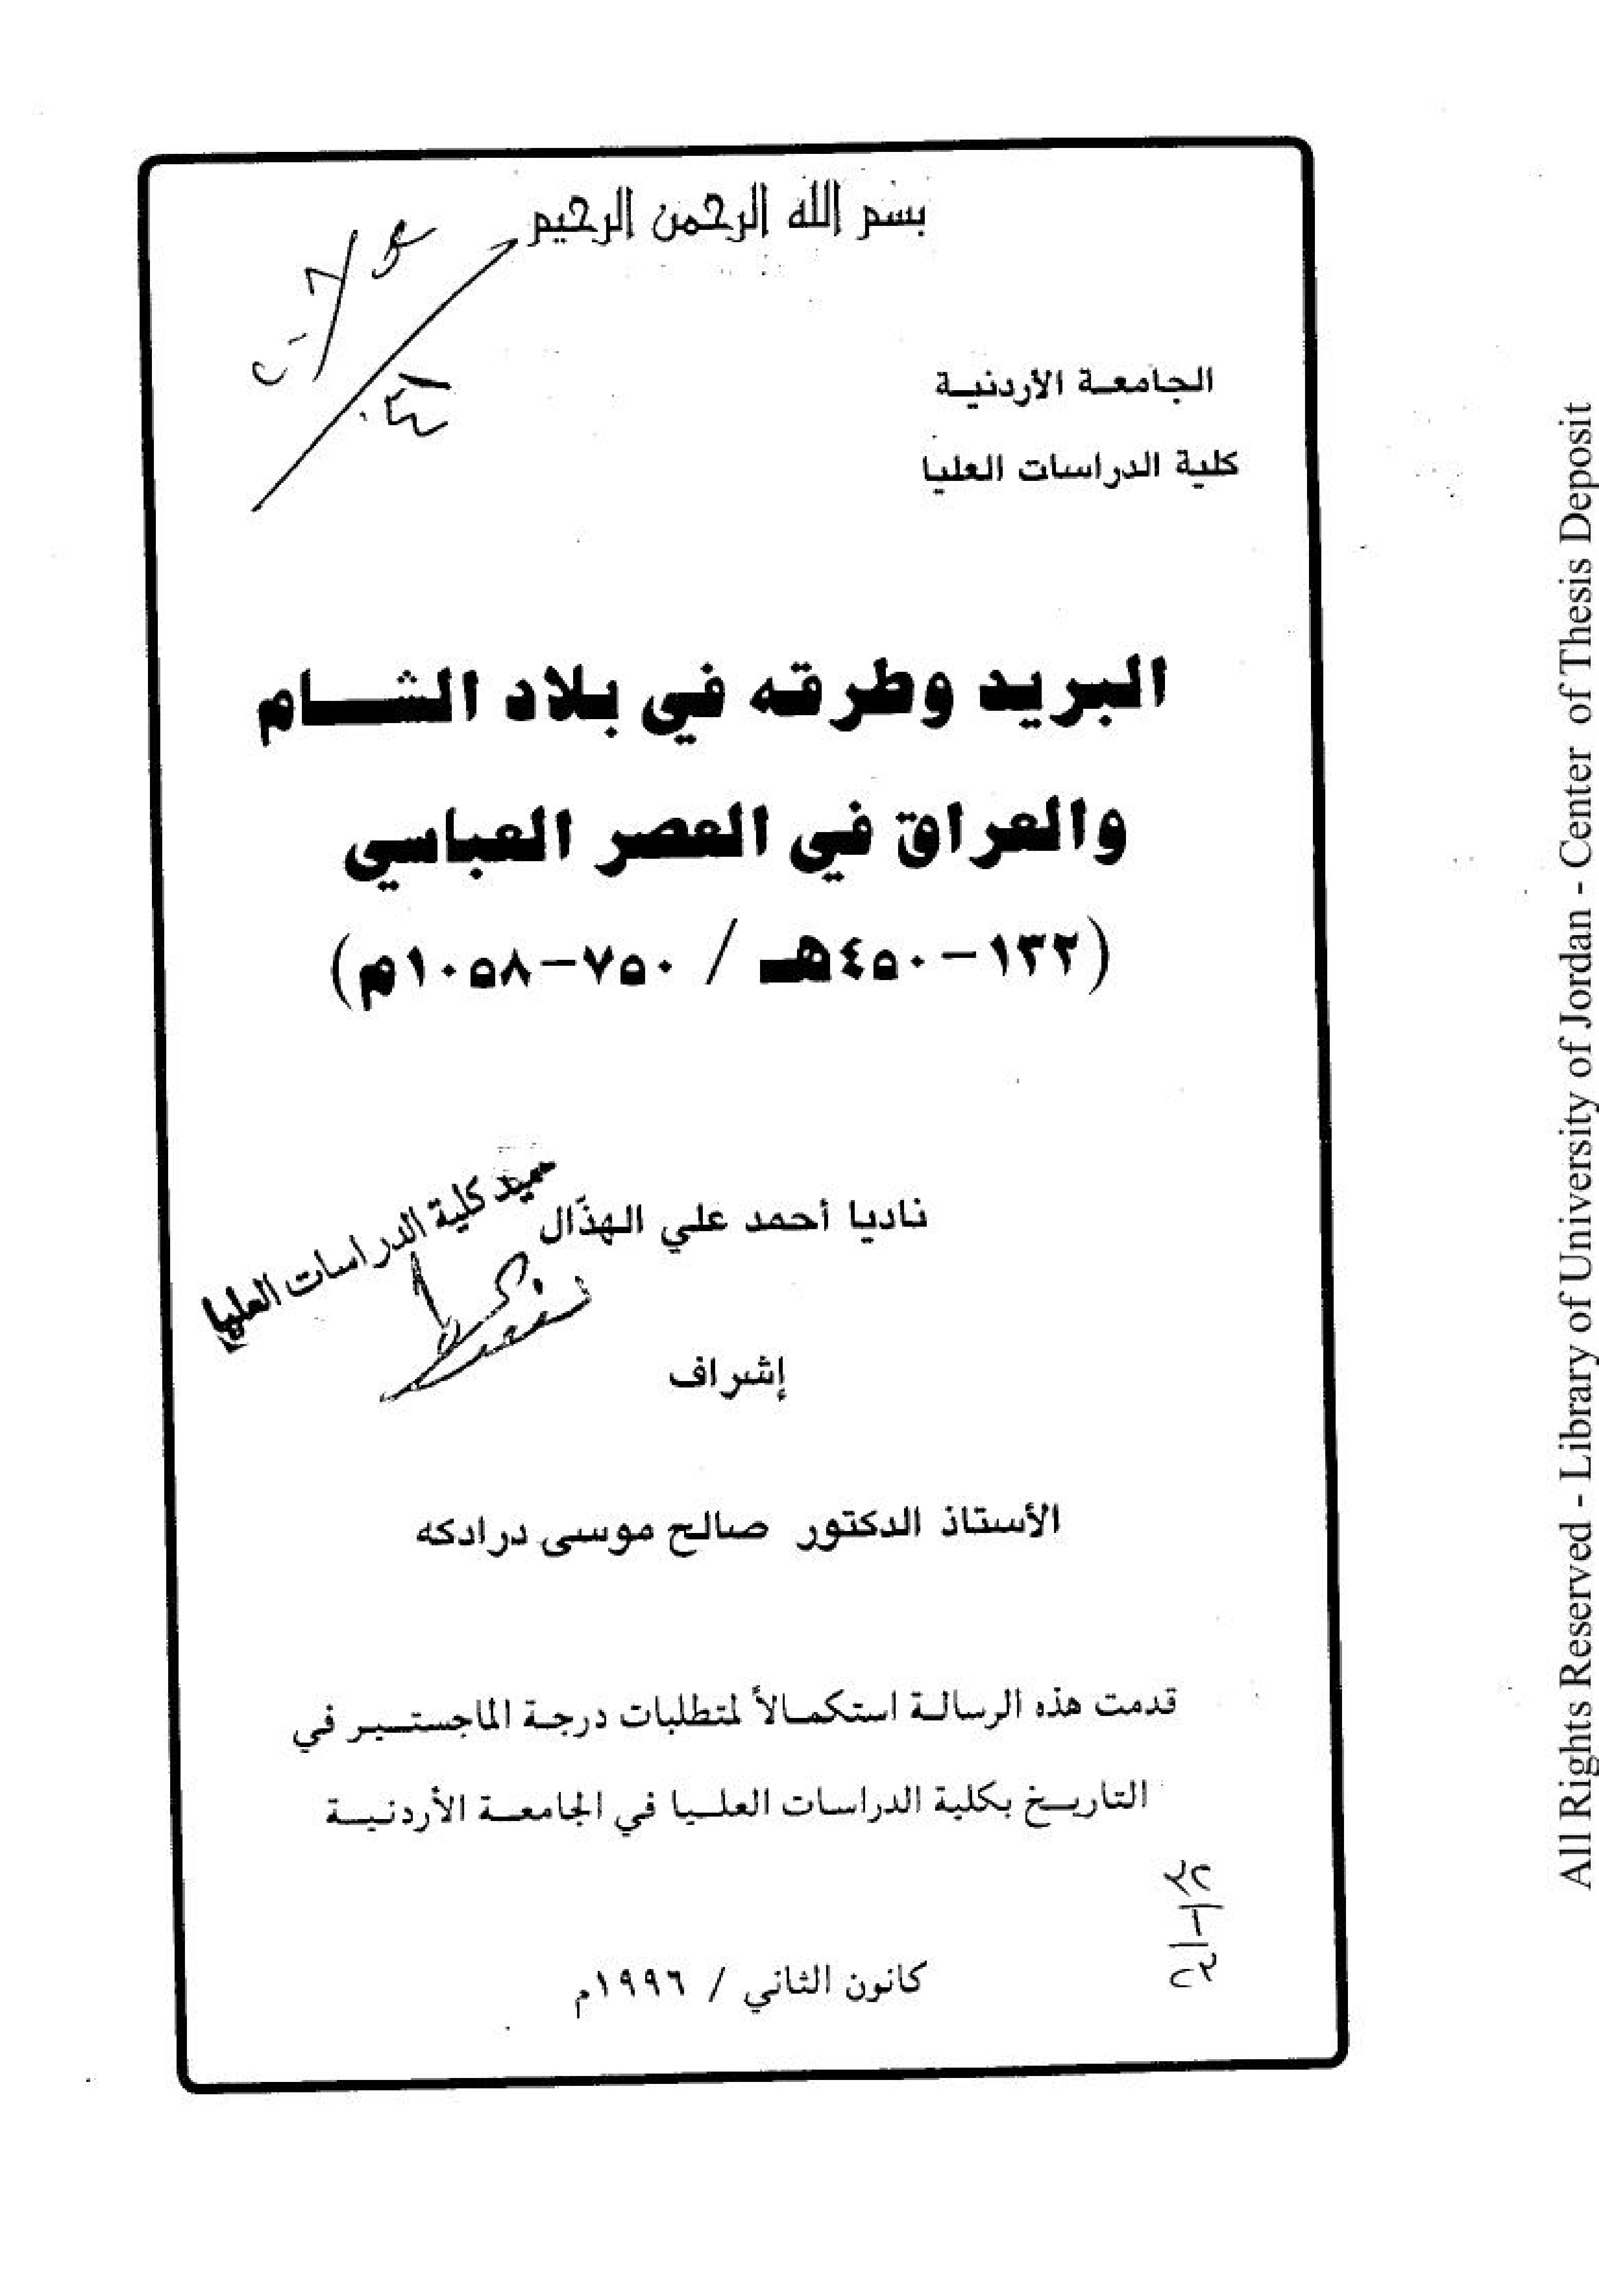 بسم الله الرحمن الرحيم
الجامعة الأردنية
كلية الدراسات العليا
البريد وطرقه في بلاد الشام
والعراق في العصر العباسي
(١٣٢-٤٥٠هـ / ٧٥٠-١٠٥٨م)
ناديا أحمد علي الهذّال
عميد كلية الدراسات العليا
إشراف
الأستاذ الدكتور صالح موسى درادكه
قدمت هذه الرسالة استكمالاً لمتطلبات درجة الماجستير في
التاريخ بكلية الدراسات العليا في الجامعة الأردنية
كانون الثاني / ١٩٩٦م
All Rights Reserved - Library of University of Jordan - Center of Thesis Deposit